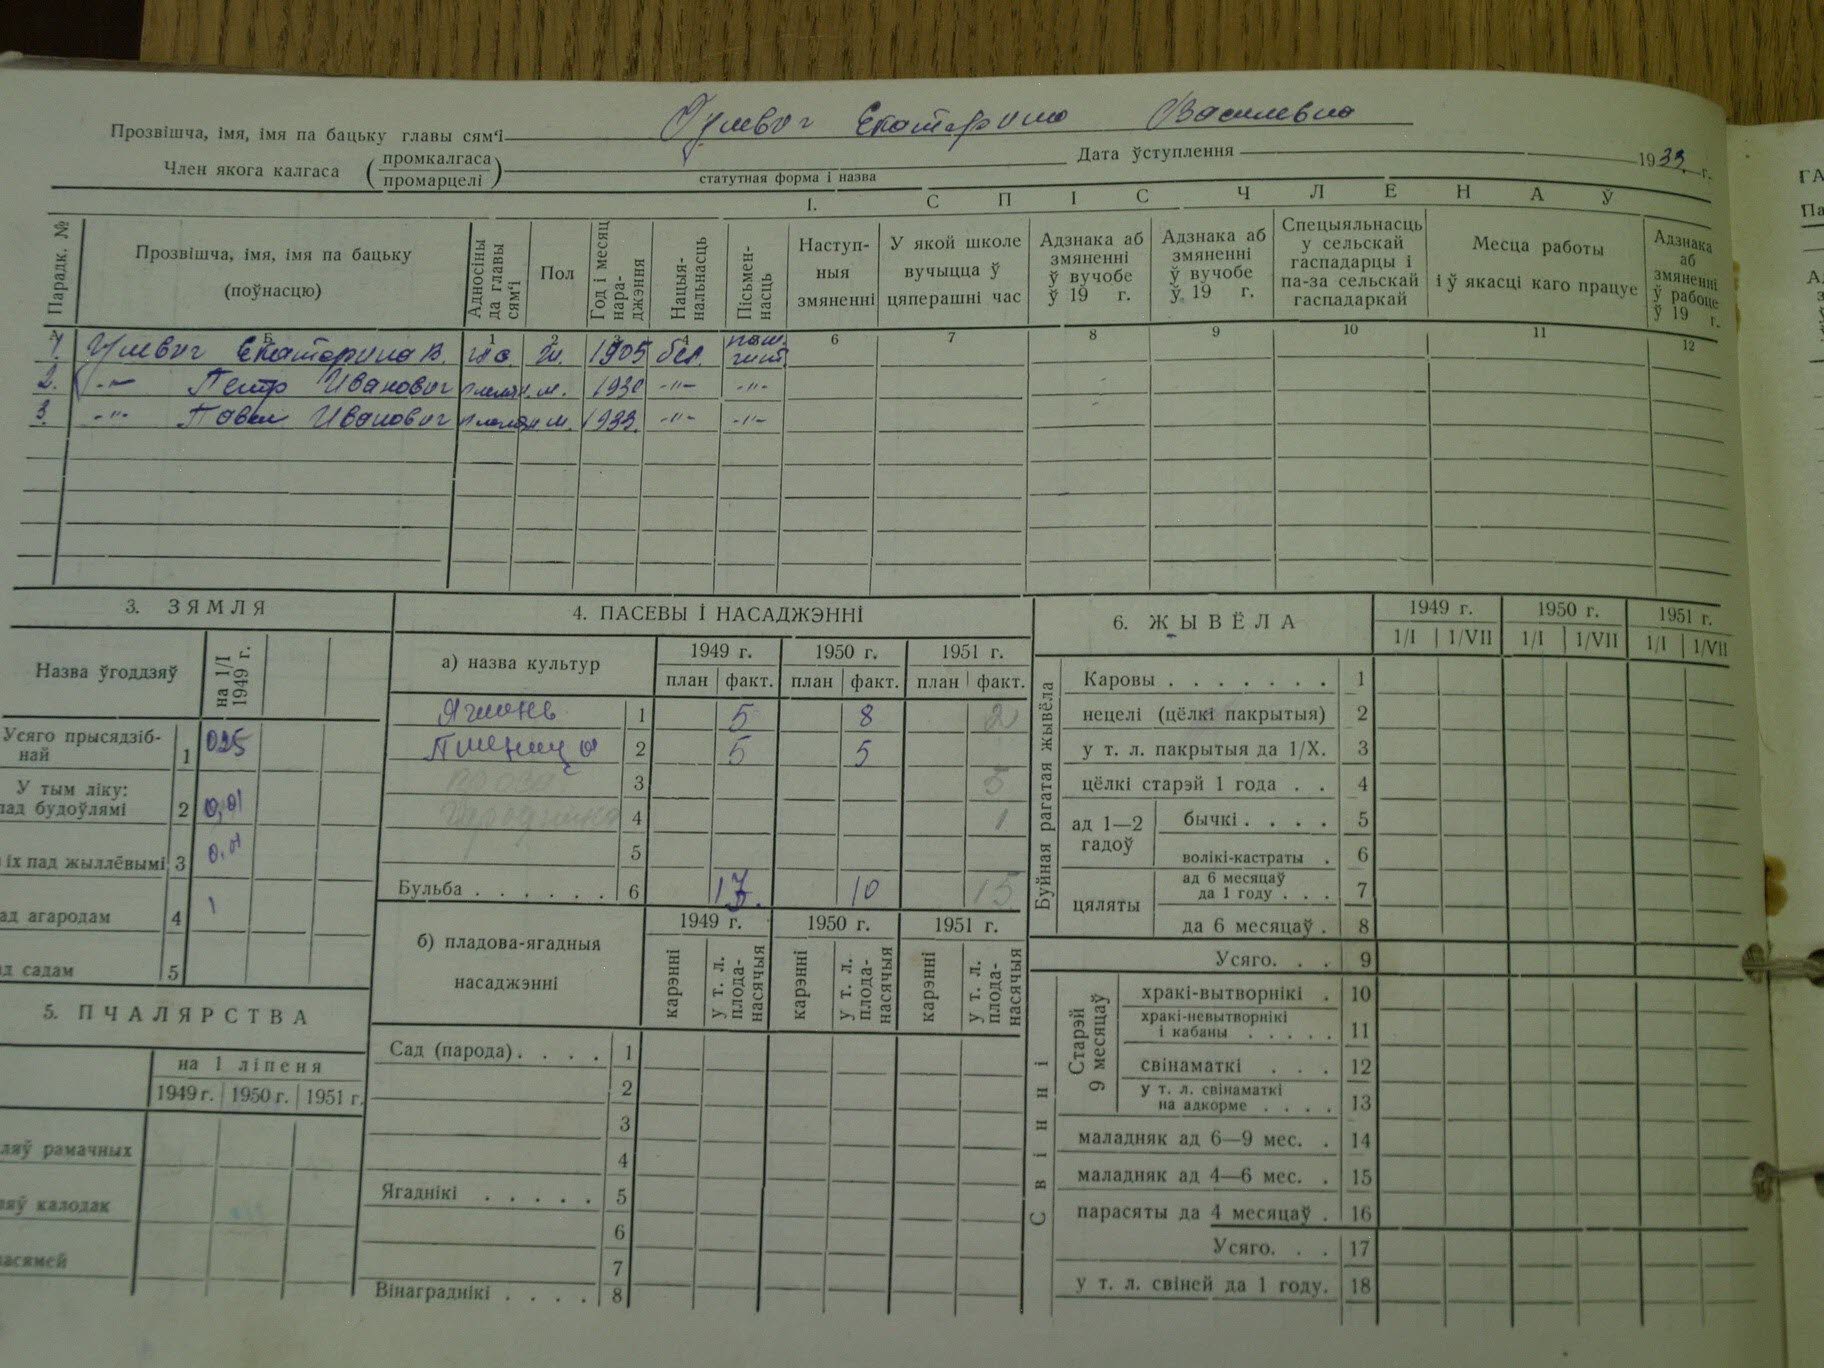 Прозвішча, імя, імя па бацьку главы сям'і Екатерина Василевна
Член якога калгаса (промкалгаса промарцелі) Дата ўступлення 1933 г.
статутная форма і назва
1. СПІС ЧЛЕНАЎ
Парадк. №
Прозвішча, імя, імя па бацьку (поўнасцю)
Адносіны да главы сям'і
Пол
Год і месяц нараджэння
Нацыянальнасць
Пісьменнасць
Наступныя змяненні
У якой школе вучыцца ў цяперашні час
Адзнака аб змяненні ў вучобе ў 19 г.
Адзнака аб змяненні ў вучобе ў 19 г.
Спецыяльнасць у сельскай гаспадарцы і па-за сельскай гаспадаркай
Месца работы і ў якасці каго працуе
Адзнака аб змяненні ў рабоце ў 19 г.
А Б 1 2 3 4 6 7 8 9 10 11 12
1. Екатерина В. ж. 1905 бел.
2. -"- Петр Иванович м. 1930 -"- -"-
3. -"- Павел Иванович м. 1933. -"- -"-
3. ЗЯМЛЯ
Назва ўгоддзяў на 1/I 1949 г.
Усяго прысядзібнай 1 025
У тым ліку:
пад будоўлямі 2 0,01
іх пад жыллёвымі 3 0,01
ад агародам 4 1
д садам 5
5. ПЧАЛЯРСТВА
на 1 ліпеня
1949 г. 1950 г. 1951 г.
ляў рамачных
яў калодак
асямей
4. ПАСЕВЫ І НАСАДЖЭННІ
а) назва культур 1949 г. 1950 г. 1951 г.
план факт. план факт. план факт.
Ячмень 1 5 8 2
Пшеница 2 5 5
3 5
4 1
5
Бульба . . . . . . 6 13. 10 15
б) пладова-ягадныя насаджэнні
1949 г. 1950 г. 1951 г.
карэнні у т. л. плоданасячыя карэнні у т. л. плоданасячыя карэнні у т. л. плоданасячыя
Сад (парода). . . . 1
2
3
4
Ягаднікі . . . . . 5
6
7
Вінаграднікі . . . . 8
6. ЖЫВЁЛА 1949 г. 1950 г. 1951 г.
1/I 1/VII 1/I 1/VII 1/I 1/VII
Буйная рагатая жывёла
Каровы . . . . . . . 1
нецелі (цёлкі пакрытыя) 2
у т. л. пакрытыя да 1/X. 3
цёлкі старэй 1 года . . 4
ад 1—2 гадоў
бычкі . . . . 5
волікі-кастраты . 6
цяляты
ад 6 месяцаў да 1 году . . . 7
да 6 месяцаў . 8
Усяго. . . 9
Свінні
Старэй 9 месяцаў
хракі-вытворнікі . 10
хракі-невытворнікі і кабаны . . . . . 11
свінаматкі . . . 12
у т. л. свінаматкі на адкорме . . . . 13
маладняк ад 6—9 мес. . 14
маладняк ад 4—6 мес. . 15
парасяты да 4 месяцаў . 16
Усяго. . . 17
у т. л. свіней да 1 году. 18
ГА
Па